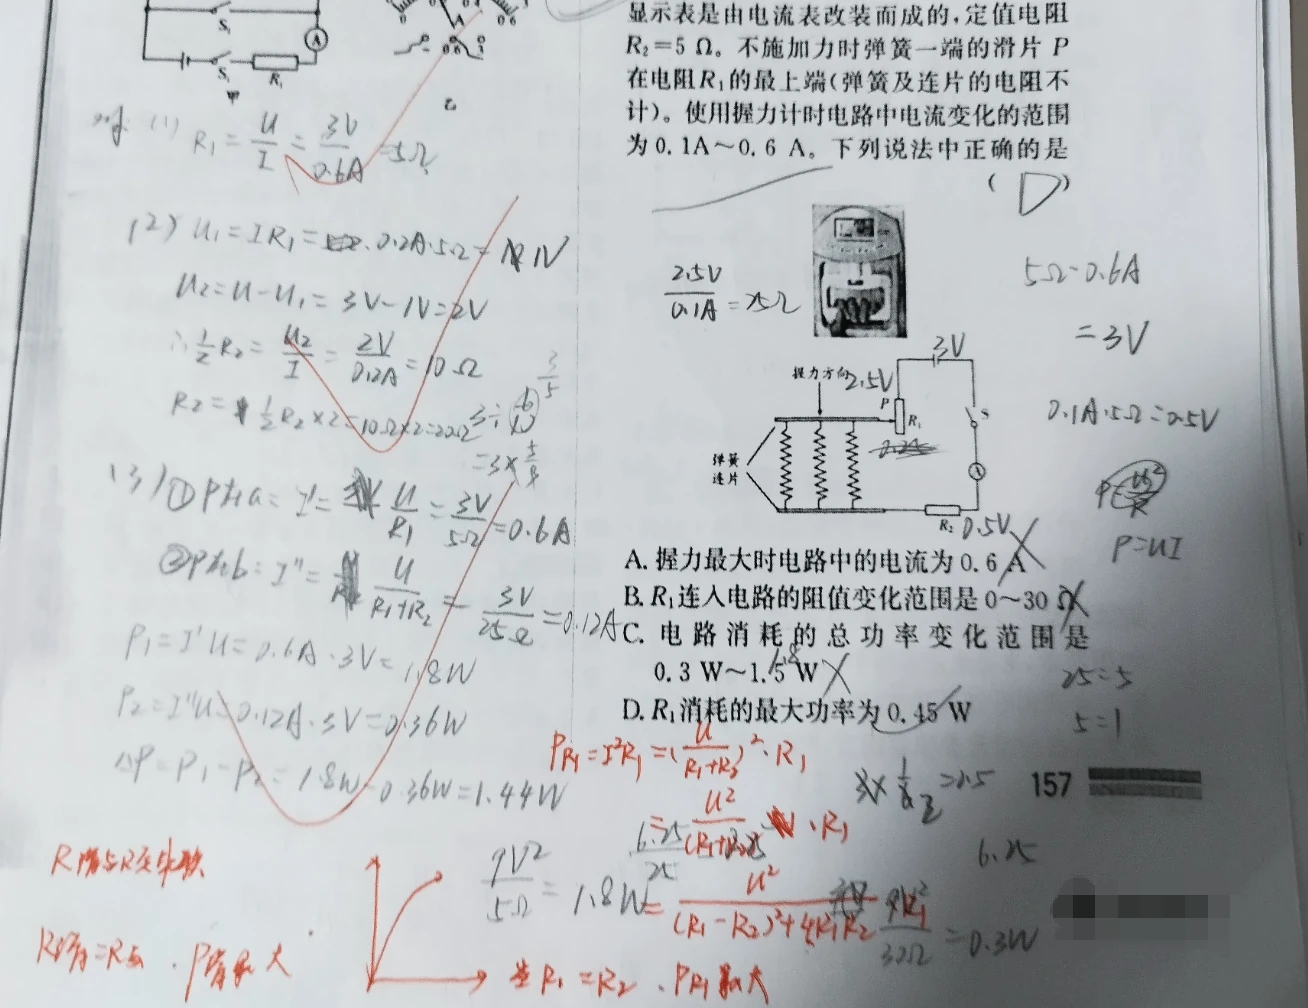 S₁
A
S₁
R₁
甲
A
0
0
乙
(1) R₁=U/I=3V/0.6A=5Ω
(2) U₁=IR₁=0.2A·5Ω=1V
U₂=U-U₁=3V-1V=2V
∴½R₂=U₂/I=2V/0.2A=10Ω
R₂=½R₂×2=10Ω×2=20Ω
(3)①P在a:I'=U/R₁=3V/5Ω=0.6A
②P在b:I"=U/R₁+R₂=3V/25Ω=0.12A
P₁=I'U=0.6A·3V=1.8W
P₂=I"U=0.12A·3V=0.36W
ΔP=P₁-P₂=1.8W-0.36W=1.44W
显示表是由电流表改装而成的,定值电阻
R₂=5 Ω。不施加力时弹簧一端的滑片 P
在电阻R₁的最上端(弹簧及连片的电阻不
计)。使用握力计时电路中电流变化的范围
为 0.1A～0.6 A。下列说法中正确的是
(D)
2.5V/0.1A=25Ω
5Ω·0.6A
=3V
0.1A·5Ω=0.5V
P=UI
3V
握力方向
2.5V
P
R₁
S
A
弹簧
连片
R₂
0.5V
A. 握力最大时电路中的电流为 0.6 A
B. R₁连入电路的阻值变化范围是 0～30 Ω
C. 电路消耗的总功率变化范围是
0.3 W～1.5 W
1.8
D. R₁消耗的最大功率为 0.45 W
25=5
5=1
P_R₁=I²R₁=(U/R₁+R₂)²·R₁
=U²/(R₁+R₂)²·R₁
=U²/(R₁-R₂)²+4R₁R₂
157
6.25/25
6.25
9V²/5Ω=1.8W
9V²/30Ω=0.3W
R滑=R定,P滑最大
当R₁=R₂,P_R₁最大